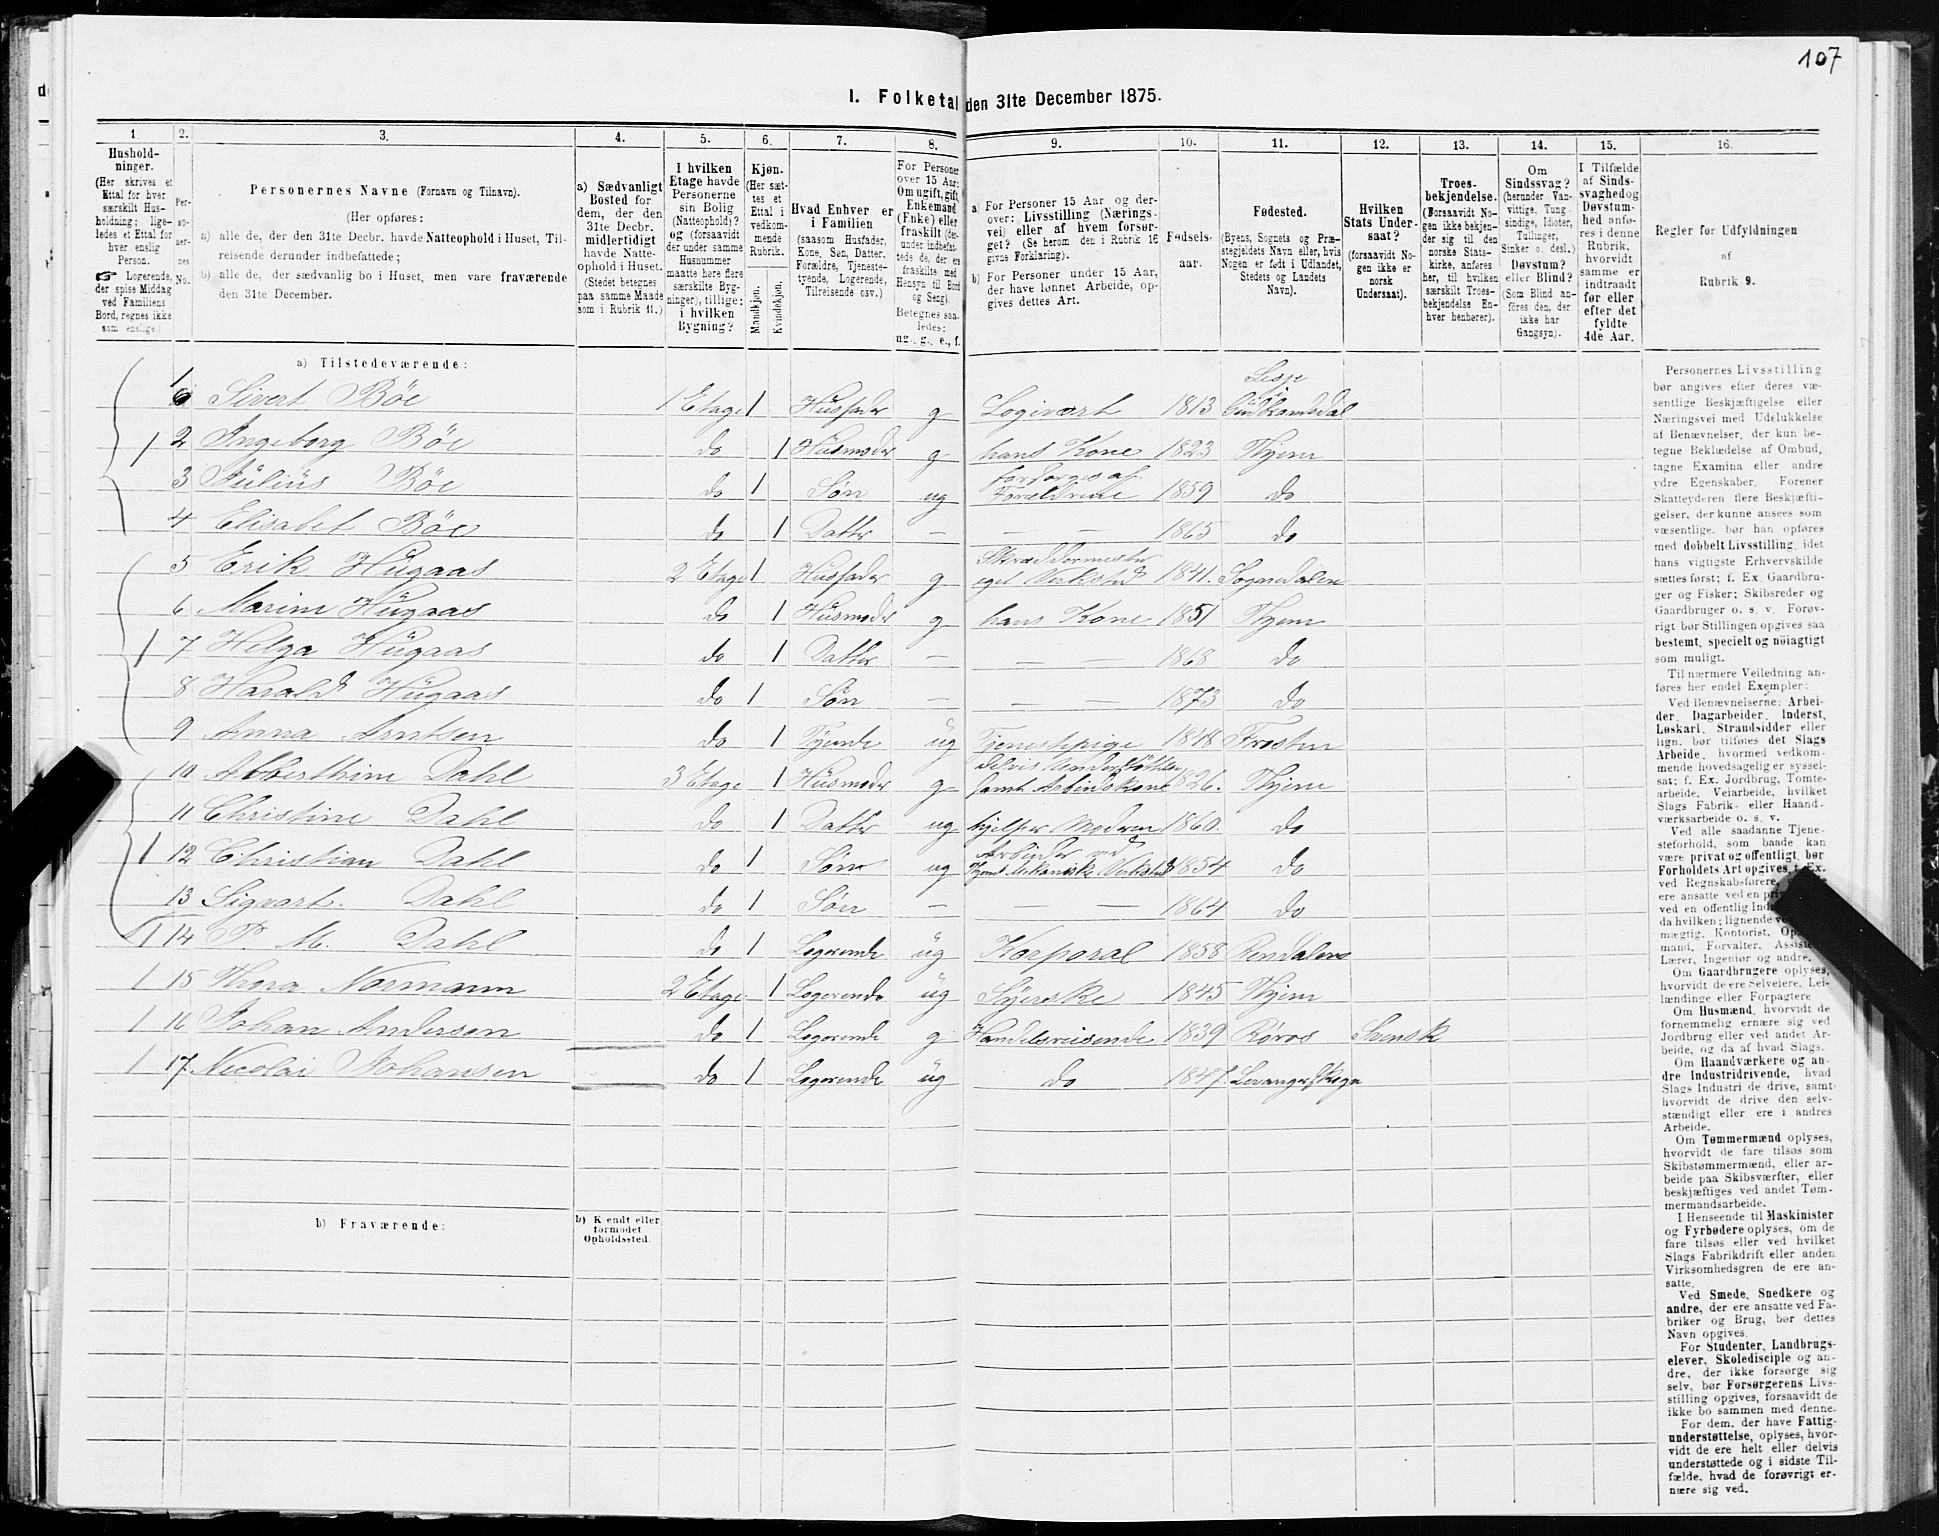 107
I. Folketal den 31te December 1875.
1. 2. 3. 4. 5. 6. 7. 8. 9. 10. 11. 12. 13. 14. 15. 16.
Hushold-
ninger.
(Her skrives et
Ettal for hver
særskilt Hus-
holdning; lige-
ledes et Ettal for
hver enslig
Person.
☞ Logerende,
der spise Middag
ved Familiens
Bord, regnes ikke
som enslige)
Per-
so-
ner-
nes
No.
Personernes Navne (Fornavn og Tilnavn).
(Her opføres:
a) alle de, der den 31te Decbr. havde Natteophold i Huset, Til-
reisende derunder indbefattede;
b) alle de, der sædvanlig bo i Huset, men vare fraværende
den 31te December.
a) Sædvanligt
Bosted for
dem, der den
31te Decbr.
midlertidigt
havde Natte-
ophold i Huset.
(Stedet betegnes
paa samme Maade
som i Rubrik 11.)
I hvilken
Etage havde
Personerne
sin Bolig
(Natteophold)?
og (forsaavidt
der under samme
Husnummer
maatte høre flere
særskilte Byg-
ninger), tillige:
i hvilken
Bygning?
Kjøn.
(Her sæt-
tes et
Ettal i
vedkom-
mende
Rubrik.
Mandkjøn.
Kvindekjøn.
Hvad Enhver er
i Familien
(saasom Husfader,
Kone, Søn, Datter,
Forældre, Tjeneste-
tyende, Logerende,
Tilreisende osv.)
For Personer
over 15 Aar:
Om ugift, gift,
Enkemand
(Enke) eller
fraskilt (der-
under indbefat-
tede de, der ere
fraskilte med
Hensyn til Bord
og Seng).
Betegnes saa-
ledes:
ug., g., e., f.
a) For Personer 15 Aar og der-
over: Livsstilling (Nærings-
vei) eller af hvem forsør-
get? (Se herom den i Rubrik 16
givne Forklaring).
b) For Personer under 15 Aar,
der have lønnet Arbeide, op-
gives dettes Art.
Fødsels-
aar.
Fødested.
(Byens, Sognets og Præ-
stegjeldets Navn eller, hvis
Nogen er født i Udlandet,
Stedets og Landets
Navn).
Hvilken
Stats Under-
saat?
(forsaavidt No-
gen ikke er
norsk
Undersaat).
Troes-
bekjendelse.
(Forsaavidt No-
gen ikke bekjen-
der sig til den
norske Stats-
kirke, anføres
her, til hvilken
særskilt Troes-
bekjendelse En-
hver henhører).
Om
Sindssvag?
(herunder Van-
vittige, Tung-
sindige, Idioter,
Tullinger,
Sinker o. desl.)
Døvstum?
eller Blind?
(Som Blind an-
føres den, der
ikke har
Gangsyn).
I Tilfælde
af Sinds-
svaghed og
Døvstum-
hed anfø-
res i denne
Rubrik,
hvorvidt
samme er
indtraadt
før eller
efter det
fyldte
4de Aar.
Regler for Udfyldningen
af
Rubrik 9.
a) Tilstedeværende:
1 Sivert Böe 1 Etage 1 Husfader g Logivært 1813 Lesje Gudbrandsdal
1 2 Ingeborg Böe do 1 Husmoder g hans Kone 1823 Thjem
3 Julius Böe do 1 Søn ug forsørges af Forældrene 1859 do
4 Elisabet Böe do 1 Datter — — 1865 do
5 Erik Hügaas 2 Etage 1 Husfader g Skræddermester eget Verksted 1841. Sognedalen
6 Marine Hügaas do 1 Husmoder g hans Kone 1851 Thjem
1 7 Helga Hügaas do 1 Datter — — — 1868 do
8 Harald Hügaas do 1 Søn — — — 1873 do
9 Anna Arntsen do 1 Tyende ug Tjenestepige 1848 Frosten
10 Abberthine Dahl 3 Etage 1 Husmoder g delvis Understøttes samt Arbeidskone 1826. Thjem
11 Christine Dahl do 1 Datter ug hjelper Modren 1860. do
1 12 Christian Dahl do 1 Søn ug Arbeider ved Thjems Mekaniske Verksted 1854 do
13 Sigvart. Dahl do 1 Søn — — — 1864 do
1 14 P. M. Dahl do 1 Logerende ug Korporal 1858 Rendalen
1 15 Thora Normann 2 Etage. 1 Logerende ug Syerske 1845 Thjem
1 16 Johan Andersen do 1 Logerende g Handelsreisende 1839 Røros Svensk
1 17 Nicolai Johansen do 1 Logerende ug do 1847. Levanger Skogn
b) Fraværende:
b) Kjendt eller
formodet
Opholdssted.
Personernes Livsstilling
bør angives efter deres væ-
sentlige Beskjæftigelse eller
Næringsvei med Udelukkelse
af Benævnelser, der kun be-
tegne Beklædelse af Ombud,
tagne Examina eller andre
ydre Egenskaber. Forener
Skatteyderen flere Beskjæfti-
gelser, der kunne ansees som
væsentlige, bør han opføres
med dobbelt Livsstilling, idet
hans vigtigste Erhvervskilde
sættes først; f. Ex. Gaardbru-
ger og Fisker; Skibsreder og
Gaardbruger o. s. v. Forøv-
rigt bør Stillingen opgives saa
bestemt, specielt og nöiagtigt
som muligt.
Til nærmere Veiledning an-
føres her endel Exempler:
Ved Benævnelserne: Arbei-
der, Dagarbeider, Inderst,
Løskarl, Strandsidder eller
lign. bør tilføies det Slags
Arbeide, hvormed vedkom-
mende hovedsagelig er syssel-
sat; f. Ex. Jordbrug, Tomte-
arbeide, Veiarbeide, hvilket
Slags Fabrik- eller Haand-
værksarbeide o. s. v.
Ved alle saadanne Tjene-
steforhold, som baade kan
være privat og offentligt, bør
Forholdets Art opgives, f. Ex.
ved Regnskabsførere,
ere ansatte ved en
ved en offentlig
da hvilken; lignende
mægtig, Kontorist,
mand, Forvalter,
Lærer, Ingeniør og andre.
Om Gaardbrugere oplyses,
hvorvidt de ere Selveiere, Lei-
lændinge eller Forpagtere
Om Husmænd, hvorvidt de
fornemmelig ernære sig ved
Jordbrug eller ved andet Ar-
beide, og da af hvad Slags.
Om Haandværkere og an-
dre Industridrivende, hvad
Slags Industri de drive, samt
hvorvidt de drive den selv-
stændigt eller ere i andres
Arbeide.
Om Tømmermænd oplyses,
hvorvidt de fare tilsøs som
Skibstømmermænd, eller ar-
beide paa Skibsværfter, eller
beskjæftiges ved andet Tøm-
mermandsarbeide.
I Henseende til Maskinister
og Fyrbødere oplyses, om de
fare tilsøs eller ved hvilket
Slags Fabrikdrift eller anden
Virksomhedsgren de ere an-
satte.
Ved Smede, Snedkere og
andre, der ere ansatte ved Fa-
briker og Brug, bør dettes
Navn opgives.
For Studenter, Landbrugs-
elever, Skoledisciple og an-
dre, der ikke forsørge sig
selv, bør Forsørgerens Livs-
stilling opgives, forsaavidt de
ikke bo sammen med denne.
For dem, der have Fattig-
understøttelse, oplyses, hvor-
vidt de ere helt eller delvis
understøttede og i sidste Til-
fælde, hvad de forøvrigt er-
nære sig ved.